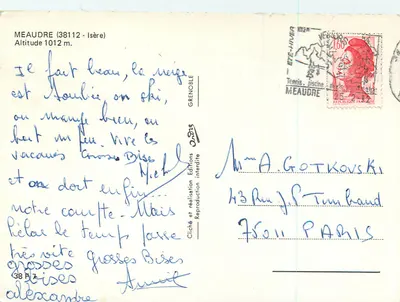 MEAUDRE (38112 - Isère)
Altitude 1012 m.
Il fait beau, la neige
est tombée on ski,
on mange bien, on
boit un peu. Vive les
vacances Grosses Bises
et on dort enfin...
notre compte. Mais
hélas le temps passe
très vite grosses Bises
grosses
bises
alexandre
38 P
GRENOBLE
Cliché et réalisation Editions
Reproduction interdite
MEAUDRE
Tennis, piscine
Mme A. GOTKOVSKI
43 Rue J.P Timbaud
75011 PARIS